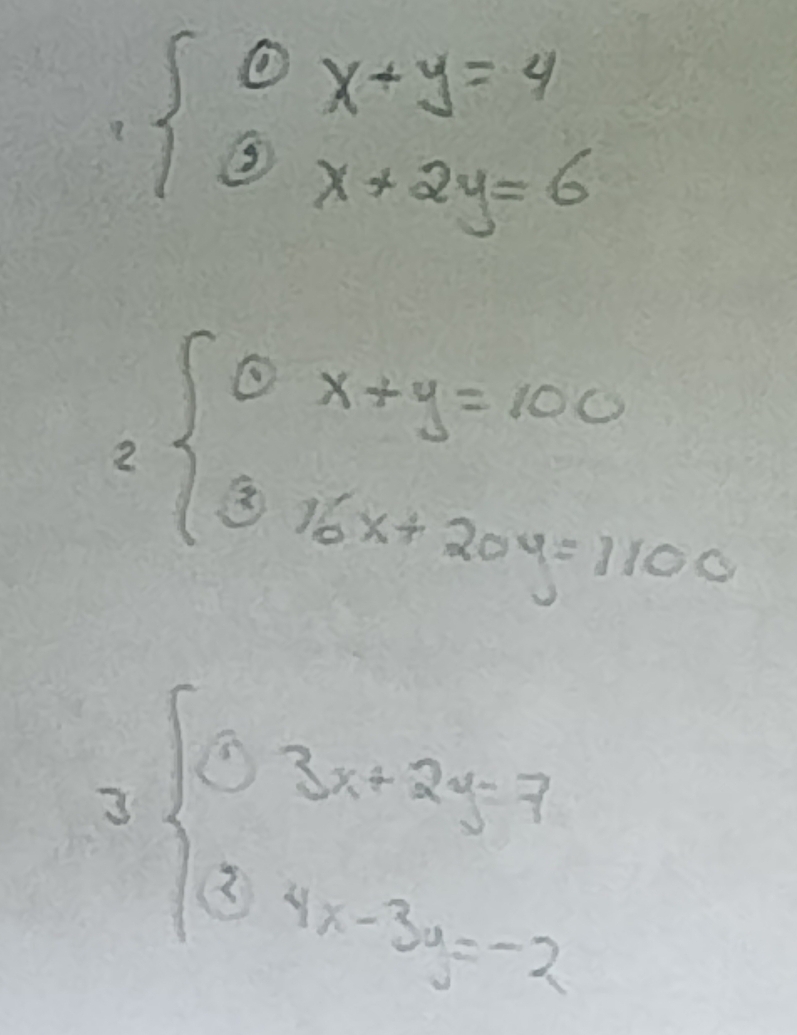 1 { ① x+y=4
② x+2y=6
2 { ① x+y=100
② 16x+20y=1100
3 { ① 3x+2y=7
② 4x-3y=-2